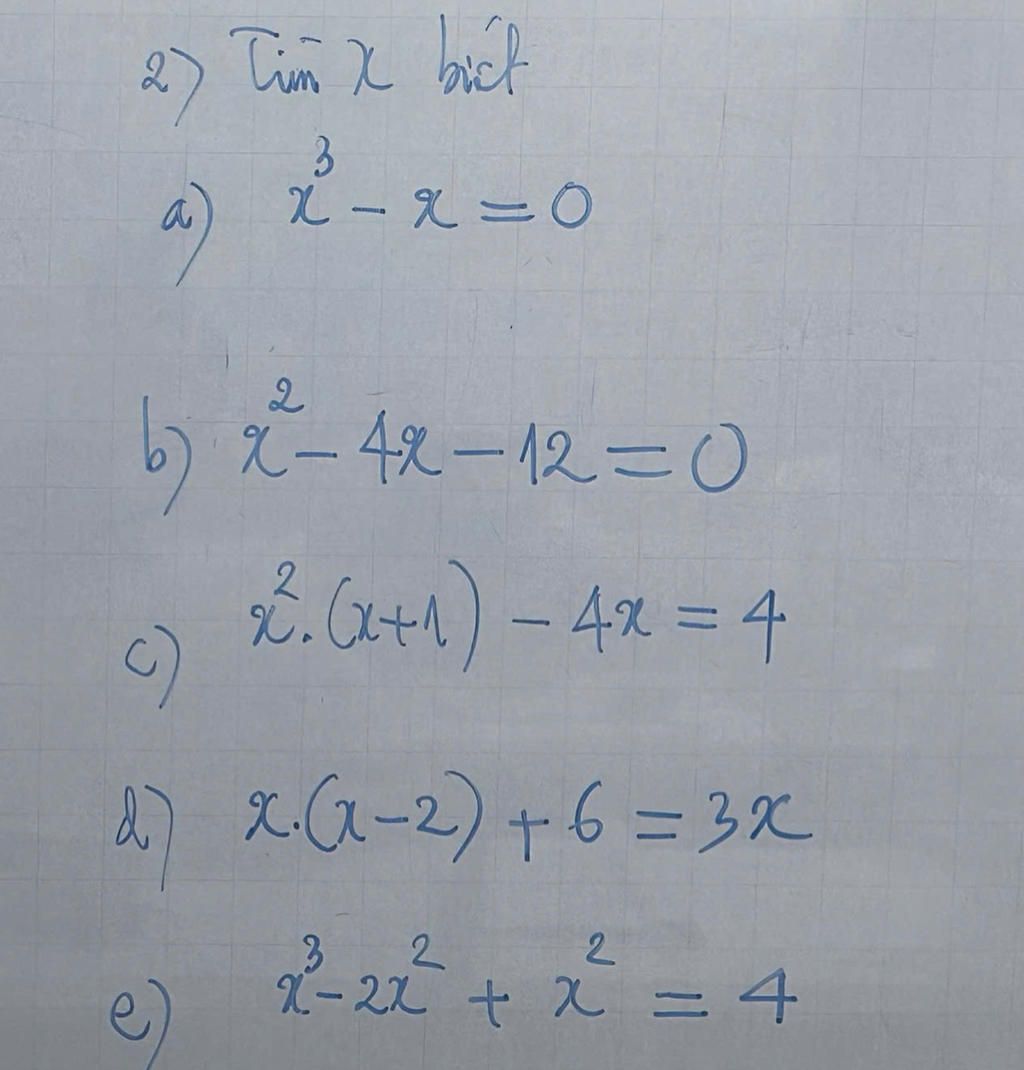 2) Tìm x biết
a) x³ - x = 0
b) x² - 4x - 12 = 0
c) x².(x+1) - 4x = 4
d) x.(x-2) + 6 = 3x
e) x³ - 2x² + x² = 4